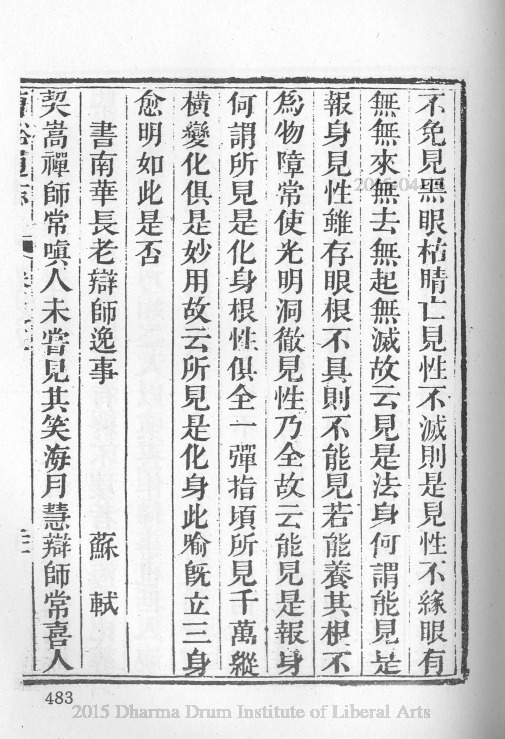 不免見黑眼枯睛亡見性不滅則是見性不緣眼有
無無來無去無起無滅故云見是法身何謂能見是
報身見性雖存眼根不具則不能見若能養其根不
爲物障常使光明洞徹見性乃全故云能見是報身
何謂所見是化身根性俱全一彈指頃所見千萬縱
橫變化俱是妙用故云所見是化身此喻旣立三身
愈明如此是否
書南華長老辯師逸事 蘇軾
契嵩禪師常嗔人未嘗見其笑海月慧辯師常喜人
483
2015 Dharma Drum Institute of Liberal Arts